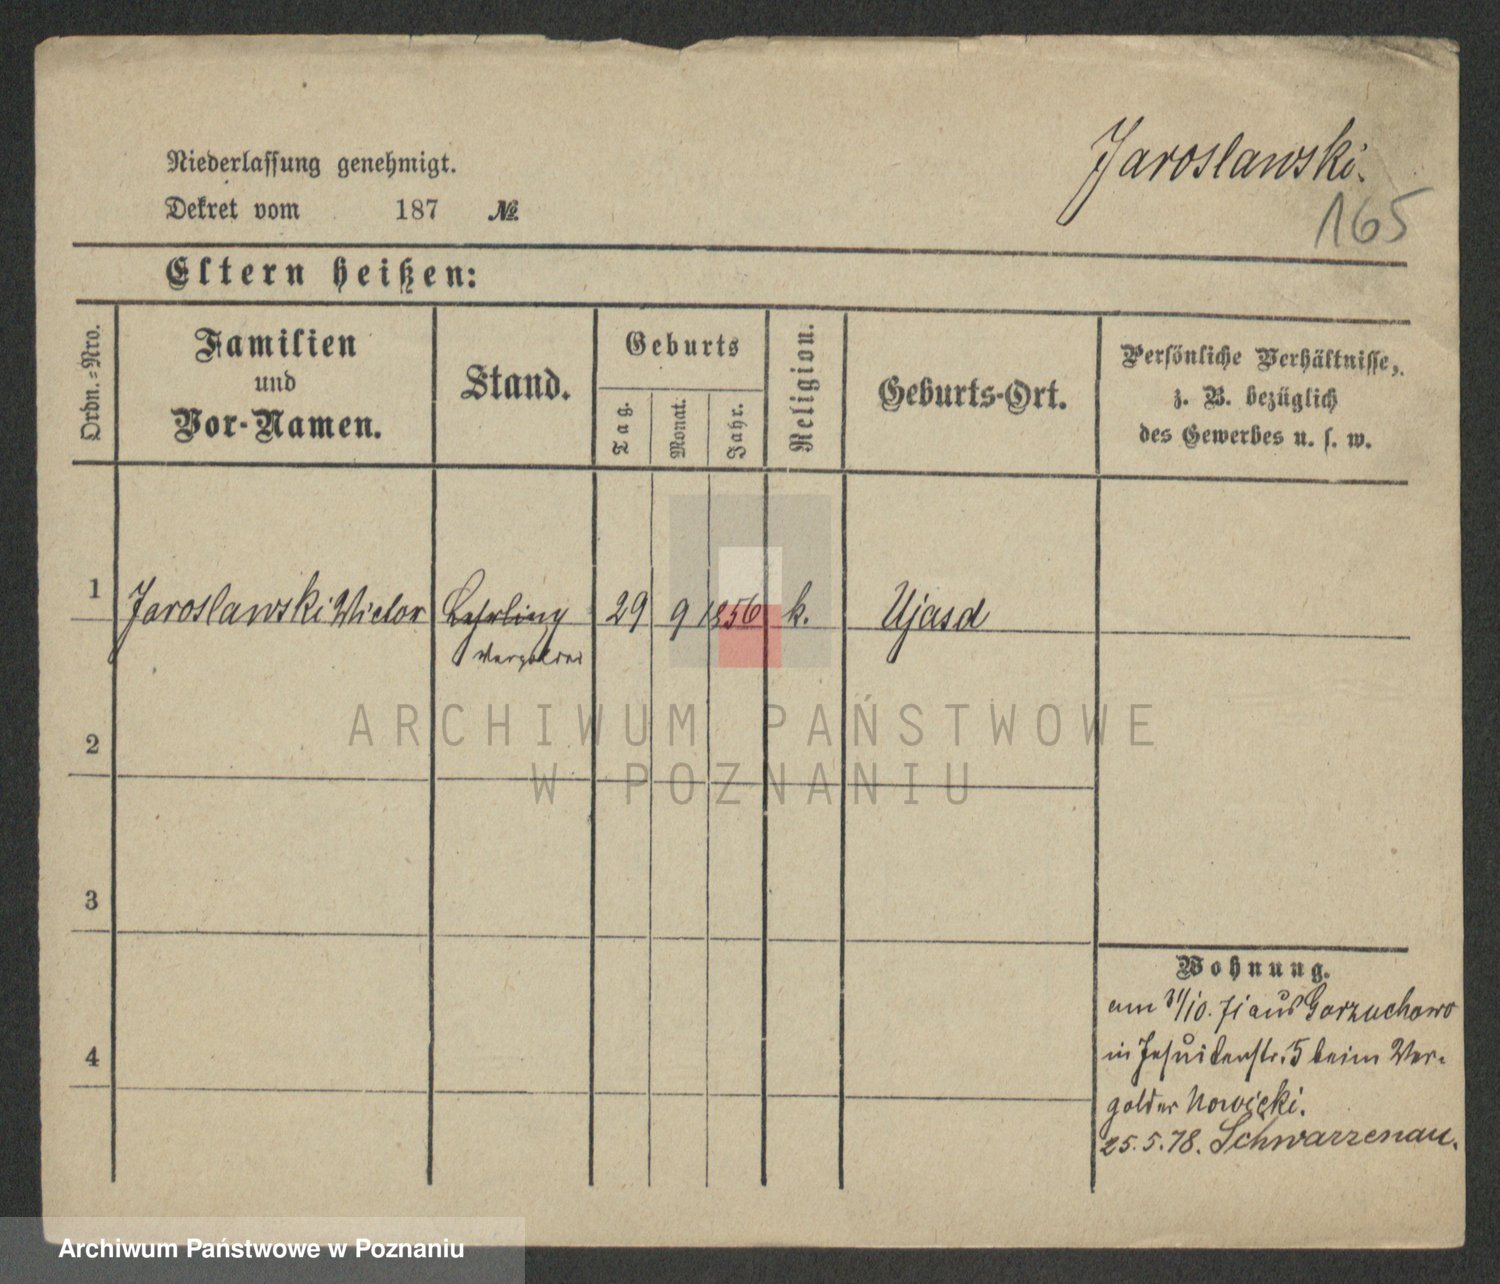 Jaroslawski.
165
Niederlassung genehmigt.
Dekret vom 187 №
Eltern heißen:
Ordn.=Nro.
Familien
und
Vor-Namen.
Stand.
Geburts
Tag.
Monat.
Jahr.
Religion.
Geburts-Ort.
Persönliche Verhältnisse,
z. B. bezüglich
des Gewerbes u. s. w.
1 Jaroslawski Victor Lehrling 29 9 1856 k. Ujasd
Vergolder
2
3
4
Wohnung.
am 31/10. 71 aus Gorzuchowo
in Jesuitenstr. 5 beim Ver-
golder Nowicki.
25.5.78. Schwarzenau.
ARCHIWUM PAŃSTWOWE
W POZNANIU
Archiwum Państwowe w Poznaniu